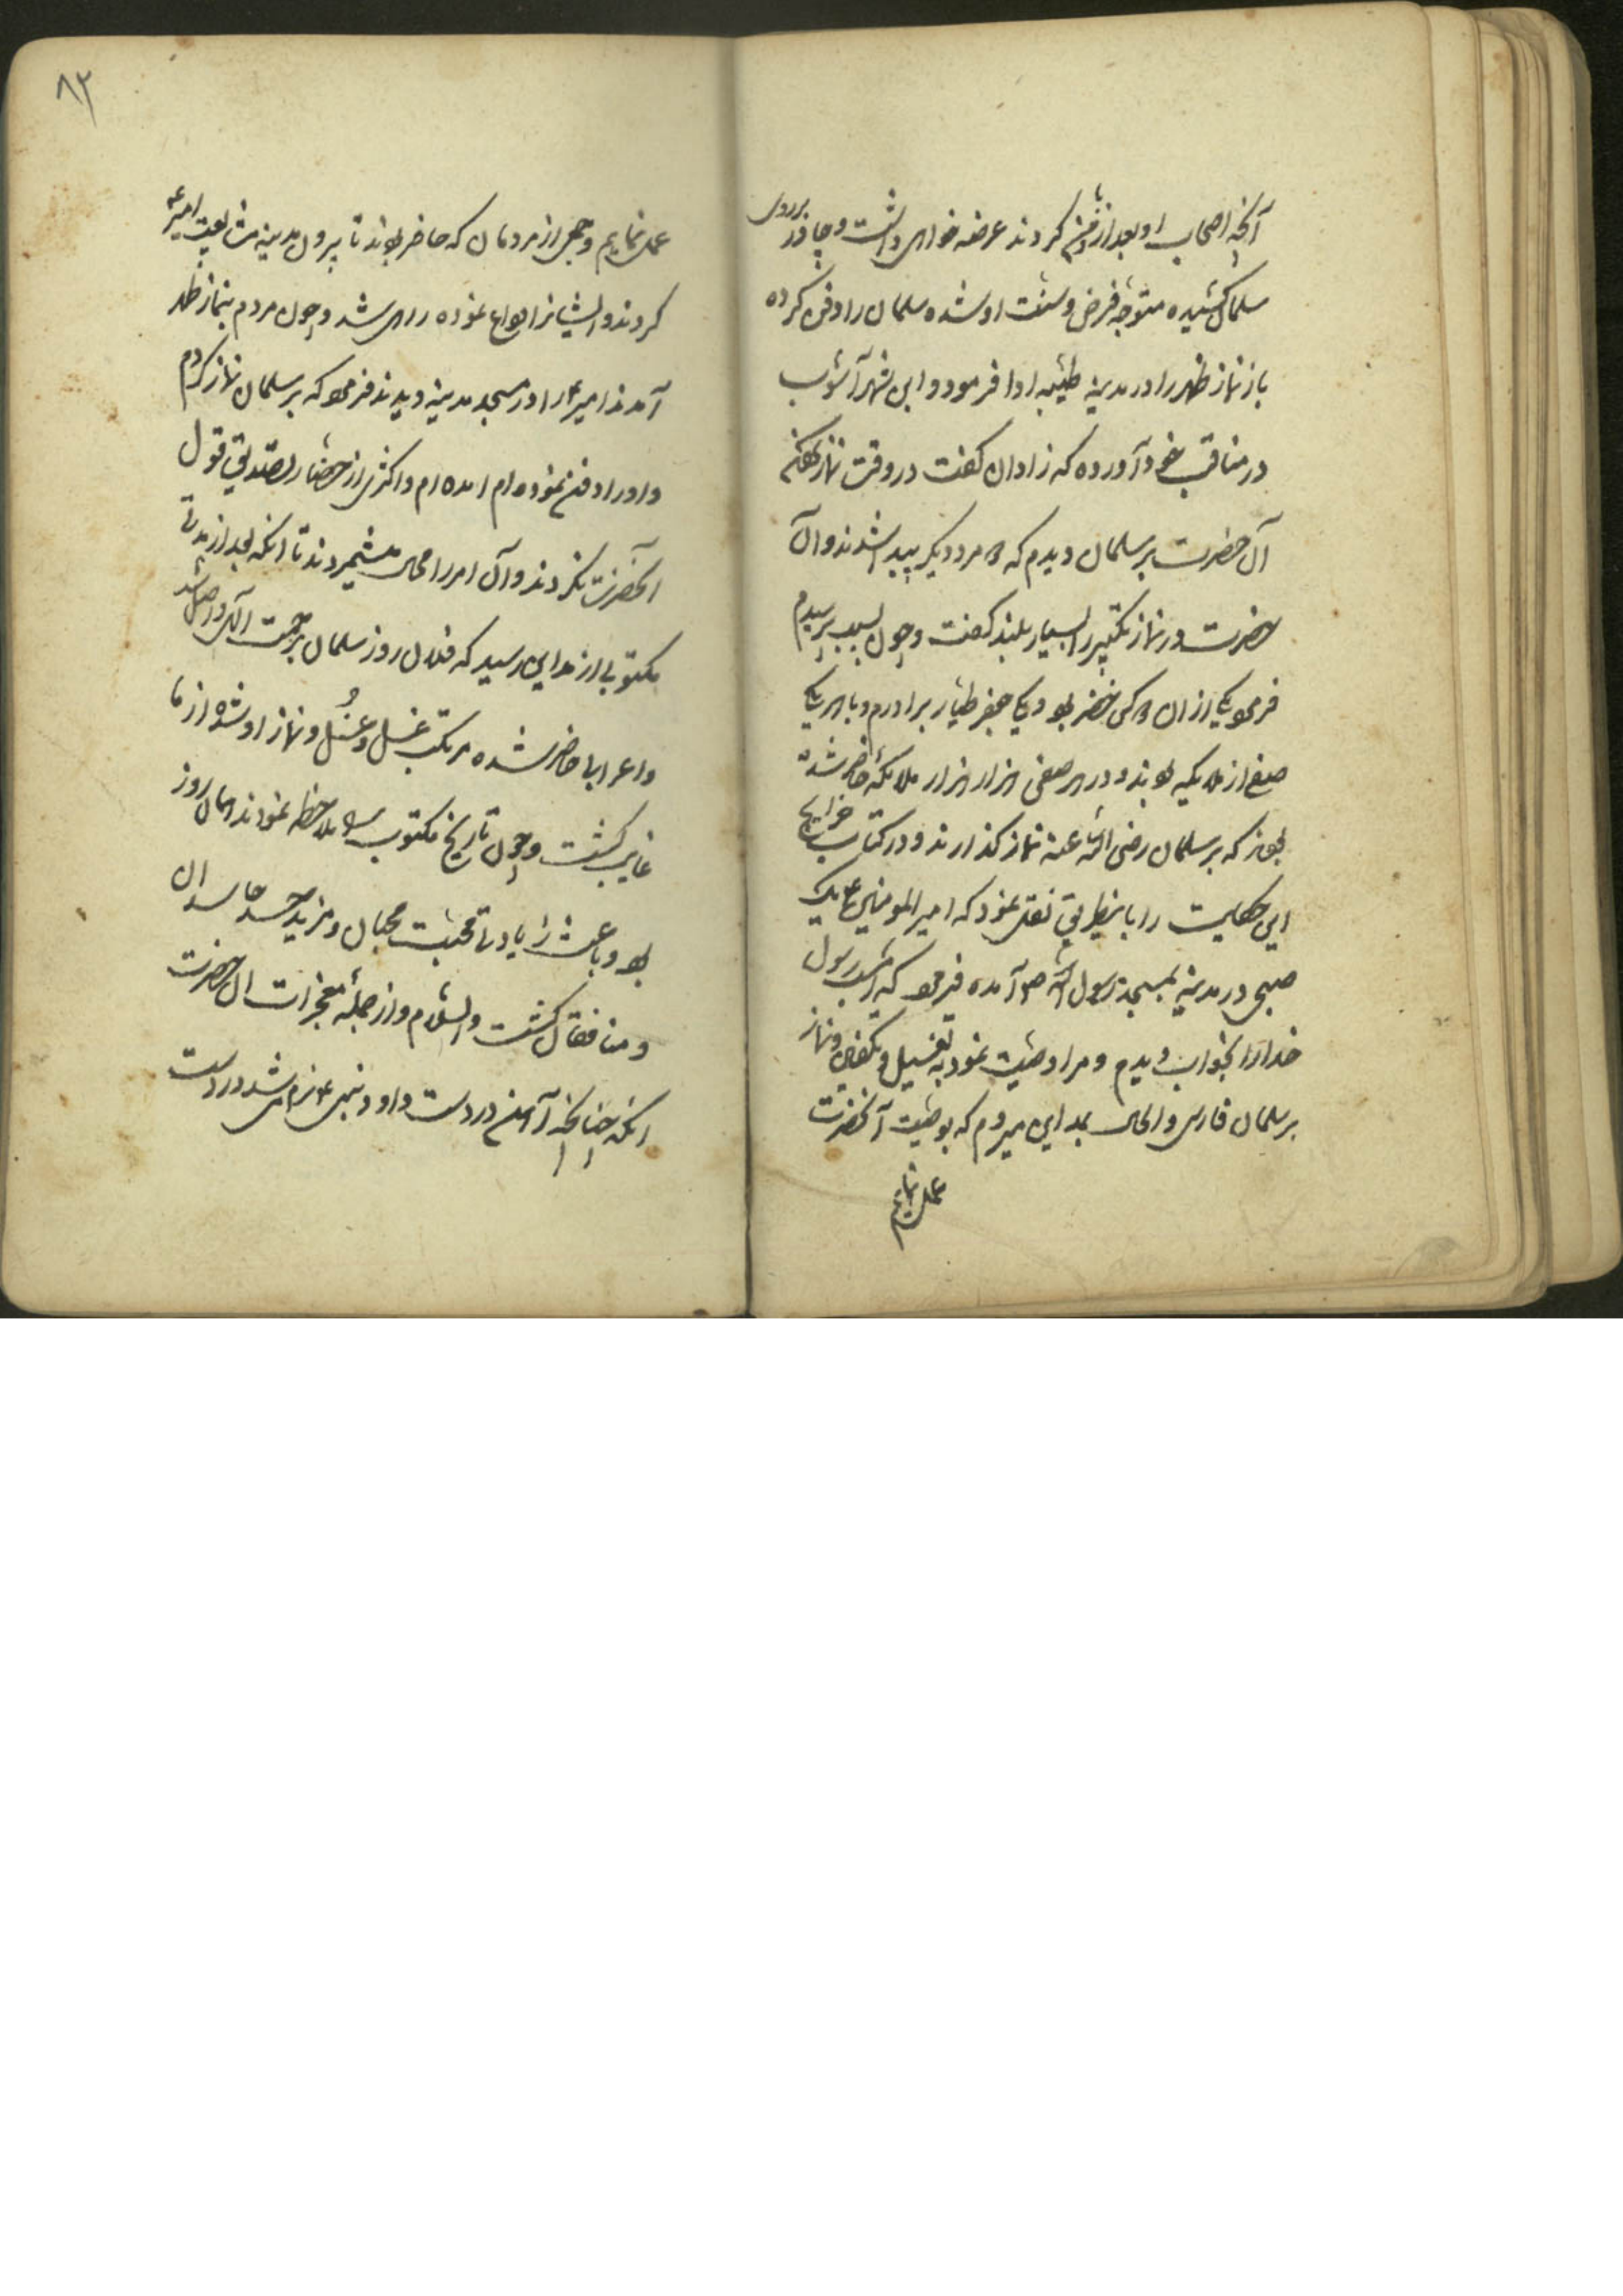 آنچه اصحاب او بعد از تو کردند عرضه خواهی داشت و چادر بر روی
سلمان کشیده متوجه فرض و سنت او شده سلمان را دفن کرده
باز نماز ظهر را در مدینه طیبه ادا فرمود و ابن شهر آشوب
در مناقب خود آورده که زادان کفت در وقت نماز
آن حضرت بر سلمان دیدم که دو مرد دیکر پیدا شدند و آن
حضرت در نماز تکبیر را بسیار بلند کفت و چون سبب پرسیدم
فرمود یکی از ان دو کس خضر بود و یکی جعفر طیار برادرم و با هر یک
صف از ملایکه بودند و در هر صفی هزار هزار ملائکه حاضر شده
بودند که بر سلمان رضی الله عنه نماز کذارند و در کتاب خرایج
این حکایت را باینطریق نقل نمود که امیر المومنین ع یک
صبحی در مدینه بمسجد رسول الله ص آمده فرمود که امشب رسول
خدا را بخواب دیدم و مرا وصیت نمود به تغسیل و تکفین و نماز
بر سلمان فارسی و الحال بمداین میروم که بوصیت آنحضرت
عمل نمایم
۸۳
عمل نمایم و جمعی از مردمان که حاضر بودند تا بیرون مدینه مشایعت امیر ع
کردند و ایشانرا وداع نموده راهی شد و چون مردم بنماز ظهر
آمدند امیر ع را در مسجد مدینه دیدند فرمود که بر سلمان نماز کردم
و او را دفن نموده ام امده ام و اکثری از حضار تصدیق قول
آنحضرت نکردند و آن امر را محال میشمردند تا انکه بعد از مدتی
مکتوبی از مداین رسید که فلان روز سلمان برحمت الهی واصل شد
و اعرابی حاضر شده مرتکب غسل و نماز او شده از ما
غایب کشت و چون تاریخ مکتوب را ملاحظه نمودند همان روز
بود و باعث زیادتی محبت محبان و مزید حسد حاسدان
و منافقان کشت والسلام و از جمله معجزات ان حضرت
انکه چنانچه آهن در دست داود نبی ع نرم می شد در دست